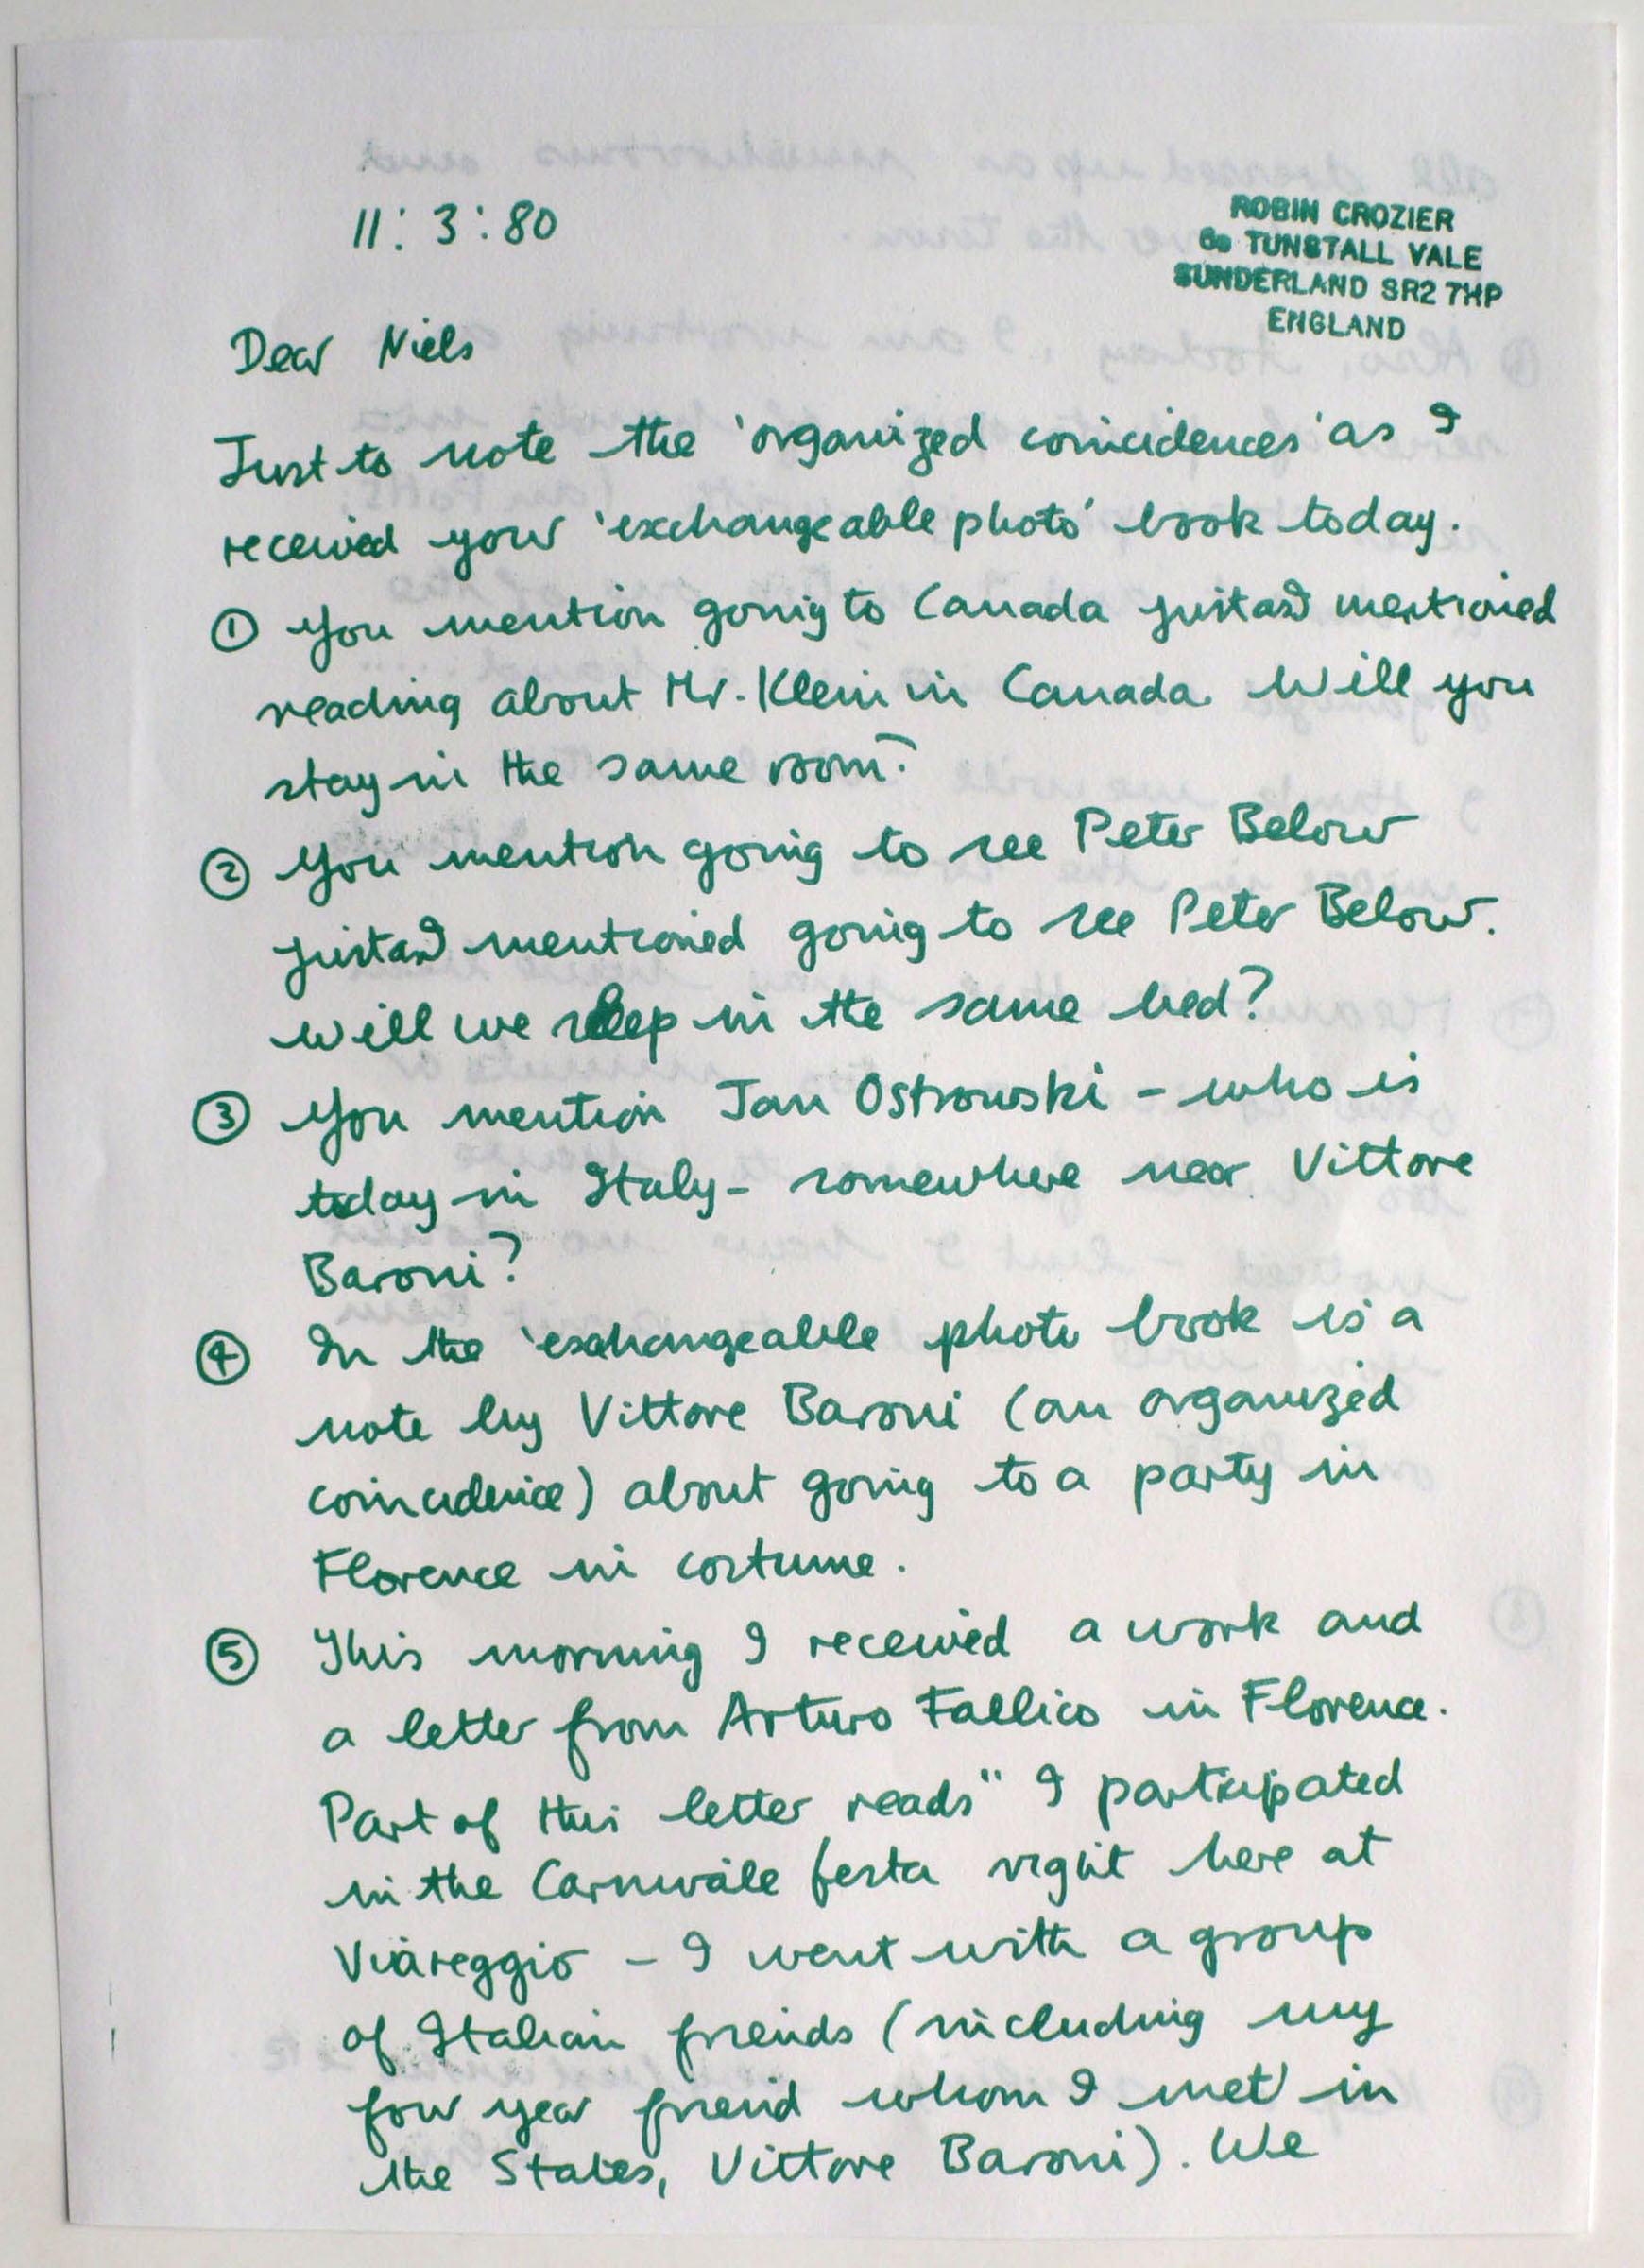 11:3:80
ROBIN CROZIER
TUNSTALL VALE
SUNDERLAND SR2 7HP
ENGLAND
Dear Niels
Just to note the 'organized coincidences' as I
received your 'exchangeable photo' book today.
① You mention going to Canada just as I mentioned
reading about Mr. Klein in Canada. Will you
stay in the same room?
② You mention going to see Peter Below
just as I mentioned going to see Peter Below.
Will we sleep in the same bed?
③ You mention Jan Ostrowski - who is
today in Italy - somewhere near Vittore
Baroni?
④ In the 'exchangeable photo book is a
note by Vittore Baroni (an organized
coincidence) about going to a party in
Florence in costume.
⑤ This morning I received a work and
a letter from Arturo Fallico in Florence.
Part of this letter reads " I participated
in the Carnivale festa right here at
Viareggio - I went with a group
of Italian friends (including my
four year friend whom I met in
the States, Vittore Baroni). We